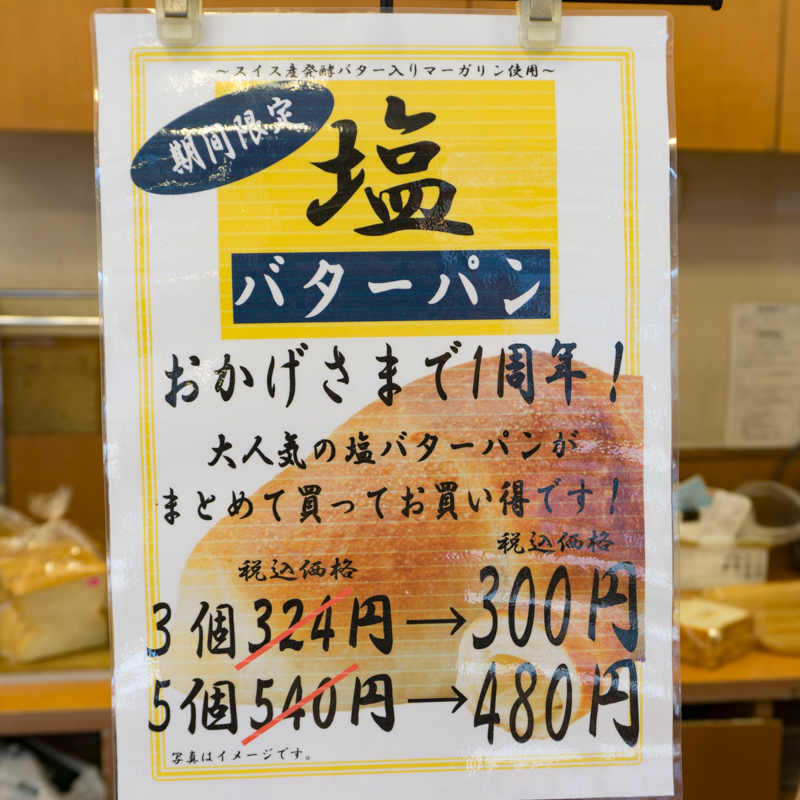 ～スイス産発酵バター入りマーガリン使用～
期間限定
塩
バターパン
おかげさまで1周年！
大人気の塩バターパンが
まとめて買ってお買い得です！
税込価格
税込価格
3個324円→300円
5個540円→480円
写真はイメージです。